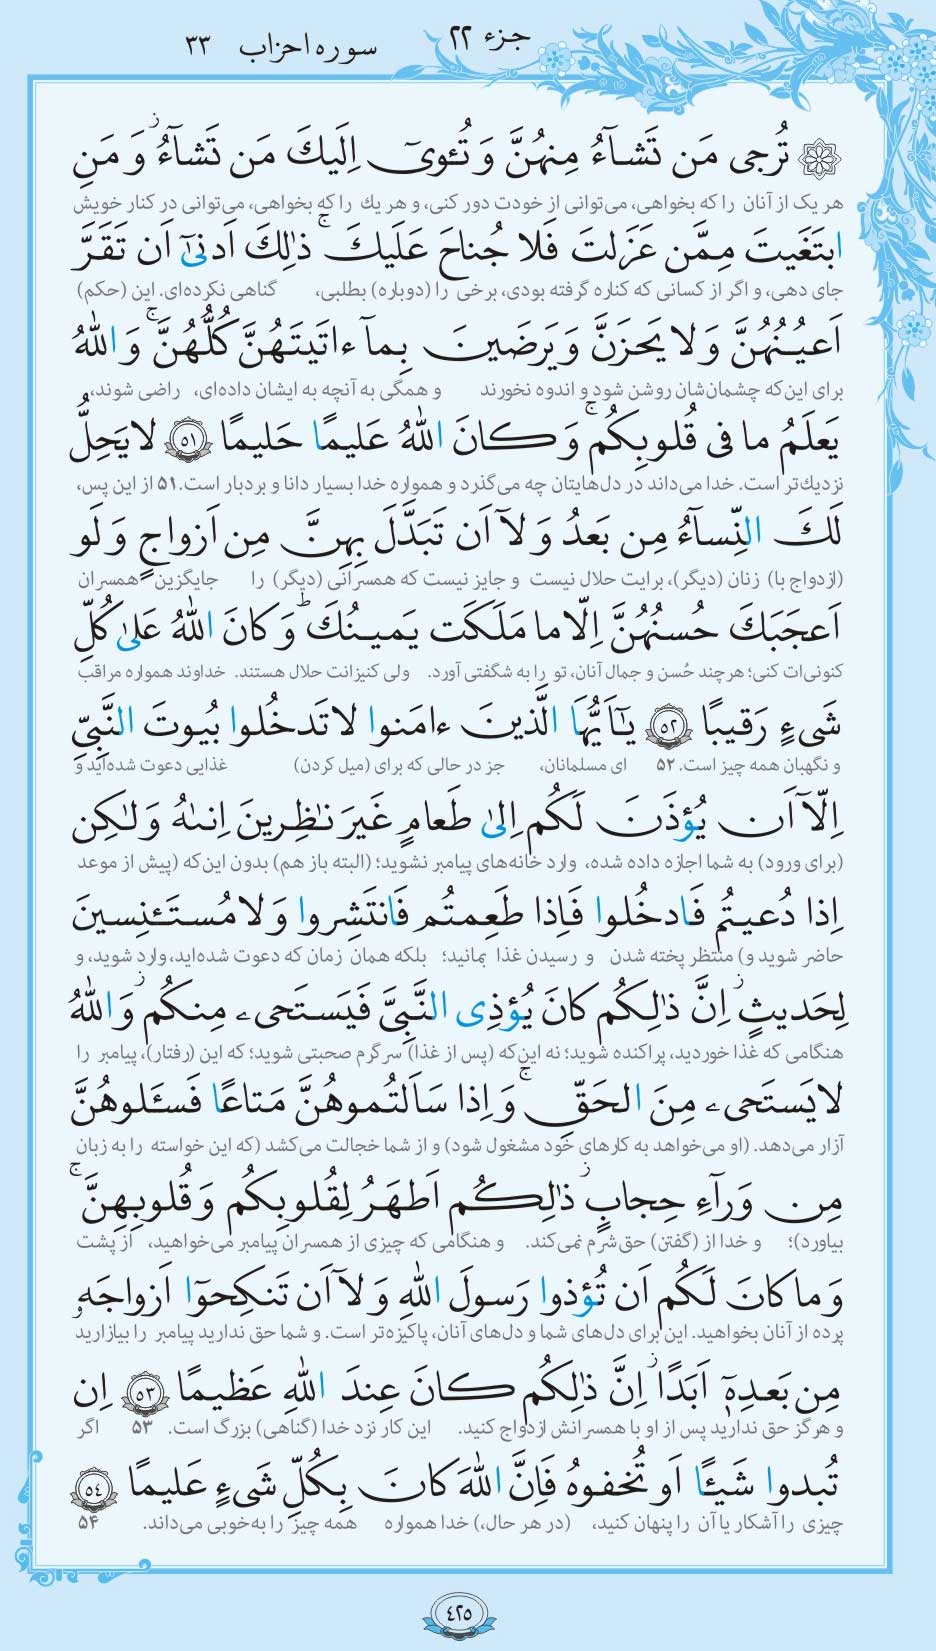 جزء ۲۲
سوره احزاب ۳۳
تُرجی مَن تَشآءُ مِنهُنَّ وَ تُـٔویٓ اِلَیكَ مَن تَشآءُ ۖ وَ مَنِ
هر یک از آنان را که بخواهی، می‌توانی از خودت دور کنی، و هر یك را که بخواهی، می‌توانی در کنار خویش
ابتَغَیتَ مِمَّن عَزَلتَ فَلا جُناحَ عَلَیكَ ۚ ذٰلِكَ اَدنیٰٓ اَن تَقَرَّ
جای دهی، و اگر از کسانی که کناره گرفته بودی، برخی را (دوباره) بطلبی، گناهی نکرده‌ای. این (حکم)
اَعیُنُهُنَّ وَ لا یَحزَنَّ وَ یَرضَینَ بِمآ ءاتَیتَهُنَّ كُلُّهُنَّ ۚ وَ اللهُ
برای این‌که چشمان‌شان روشن شود و اندوه نخورند و همگی به آنچه به ایشان داده‌ای، راضی شوند،
یَعلَمُ ما فی قُلوبِكُم ۚ وَ كانَ اللهُ عَلیمًا حَلیمًا ﴿٥١﴾ لا یَحِلُّ
نزدیك‌تر است. خدا می‌داند در دل‌هایتان چه می‌گذرد و همواره خدا بسیار دانا و بردبار است. ۵۱ از این پس،
لَكَ النِّسآءُ مِن بَعدُ وَ لآ اَن تَبَدَّلَ بِهِنَّ مِن اَزواجٍ وَ لَو
(ازدواج با) زنان (دیگر)، برایت حلال نیست و جایز نیست که همسرانی (دیگر) را جایگزین همسران
اَعجَبَكَ حُسنُهُنَّ اِلّا ما مَلَكَت یَمینُكَ ۗ وَ كانَ اللهُ عَلیٰ كُلِّ
کنونی‌ات کنی؛ هرچند حُسن و جمال آنان، تو را به شگفتی آورد. ولی کنیزانت حلال هستند. خداوند همواره مراقب
شَیءٍ رَقیبًا ﴿٥٢﴾ یٰٓاَیُّهَا الَّذینَ ءامَنوا لا تَدخُلوا بُیوتَ النَّبِیِّ
و نگهبان همه چیز است. ۵۲ ای مسلمانان، جز در حالی که برای (میل کردن) غذایی دعوت شده‌اید و
اِلّآ اَن یُؤذَنَ لَكُم اِلیٰ طَعامٍ غَیرَ نٰظِرینَ اِنىٰهُ وَ لٰكِن
(برای ورود) به شما اجازه داده شده، وارد خانه‌های پیامبر نشوید؛ (البته باز هم) بدون این‌که (پیش از موعد
اِذا دُعیتُم فَادخُلوا فَاِذا طَعِمتُم فَانتَشِروا وَ لا مُستَـٔنِسینَ
حاضر شوید و) منتظر پخته شدن و رسیدن غذا بمانید؛ بلکه همان زمان که دعوت شده‌اید، وارد شوید، و
لِحَدیثٍ ۚ اِنَّ ذٰلِكُم كانَ یُؤذِی النَّبِیَّ فَیَستَحیۦ مِنكُم ۖ وَ اللهُ
هنگامی که غذا خوردید، پراکنده شوید؛ نه این‌که (پس از غذا) سرگرم صحبتی شوید؛ که این (رفتار)، پیامبر را
لا یَستَحیۦ مِنَ الحَقِّ ۚ وَ اِذا سَاَلتُموهُنَّ مَتاعًا فَسـَٔلوهُنَّ
آزار می‌دهد. (او می‌خواهد به کارهای خود مشغول شود) و از شما خجالت می‌کشد (که این خواسته را به زبان
مِن وَرآءِ حِجابٍ ۚ ذٰلِكُم اَطهَرُ لِقُلوبِكُم وَ قُلوبِهِنَّ ۚ
بیاورد)؛ و خدا از (گفتن) حق شرم نمی‌کند. و هنگامی که چیزی از همسران پیامبر می‌خواهید، از پشت
وَ ما كانَ لَكُم اَن تُؤذوا رَسولَ اللهِ وَ لآ اَن تَنكِحوٓا اَزواجَهٗ
پرده از آنان بخواهید. این برای دل‌های شما و دل‌های آنان، پاکیزه‌تر است. و شما حق ندارید پیامبر را بیازارید
مِن بَعدِهٖٓ اَبَدًا ۚ اِنَّ ذٰلِكُم كانَ عِندَ اللهِ عَظیمًا ﴿٥٣﴾ اِن
و هرگز حق ندارید پس از او با همسرانش ازدواج کنید. این کار نزد خدا (گناهی) بزرگ است. ۵۳ اگر
تُبدوا شَیـًٔا اَو تُخفوهُ فَاِنَّ اللهَ كانَ بِكُلِّ شَیءٍ عَلیمًا ﴿٥٤﴾
چیزی را آشکار یا آن را پنهان کنید، (در هر حال،) خدا همواره همه چیز را به‌خوبی می‌داند. ۵۴
۴۲۵